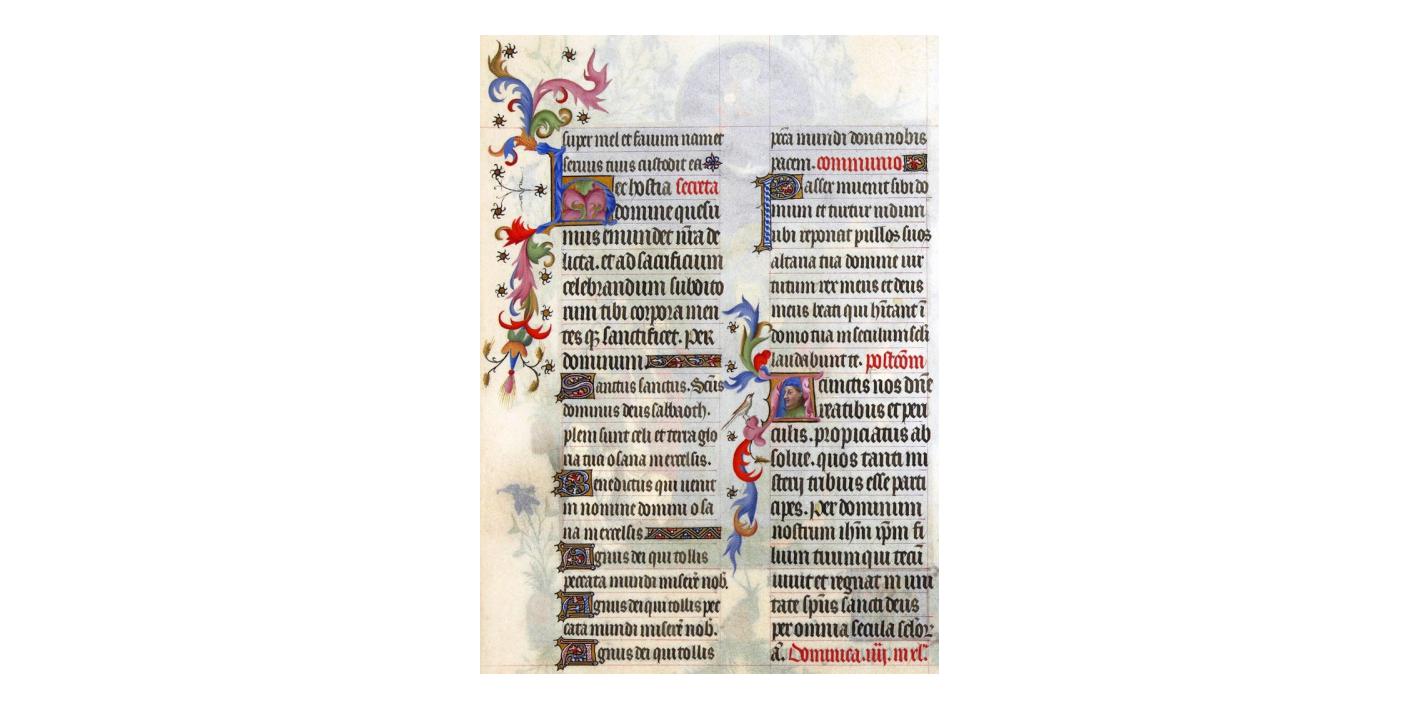 super mel et fauum nam et
seruus tuus custodit ea
Hec hostia secreta
domine quesu
mus emundet nr̄a de
licta. et ad sacrificium
celebrandum subdito
rum tibi corpora men
tes qꝫ sanctificet. per
dominum
Sanctus sanctus. Sc̄us
dominus deus sabbaoth.
pleni sunt celi et terra glo
ria tua osana in excelsis.
Benedictus qui uenit
in nomine domini osa
na in excelsis
Agnus dei qui tollis
peccata mundi miserē nob.
Agnus dei qui tollis pec
cata mundi miserē nob.
Agnus dei qui tollis
pc̄ca mundi dona nobis
pacem. communio
Passer inuenit sibi do
mum et turtur nidum
ubi reponat pullos suos
altaria tua domine uir
tutum rex meus et deus
meus beati qui hītant ī
domo tua in seculum sc̄li
laudabunt te. postcōm
Acunctis nos dn̄e
reatibus et peri
culis. propiciatus ab
solue. quos tanti mi
sterij tribuis esse parti
cipes. Per dominum
nostrum ihm̄ xp̄m fi
lium tuum qui tecū
uiuit et regnat in uni
tate sp̄us sancti deus
per omnia secula sc̄lor
a. Dominica .iiij. in xl.